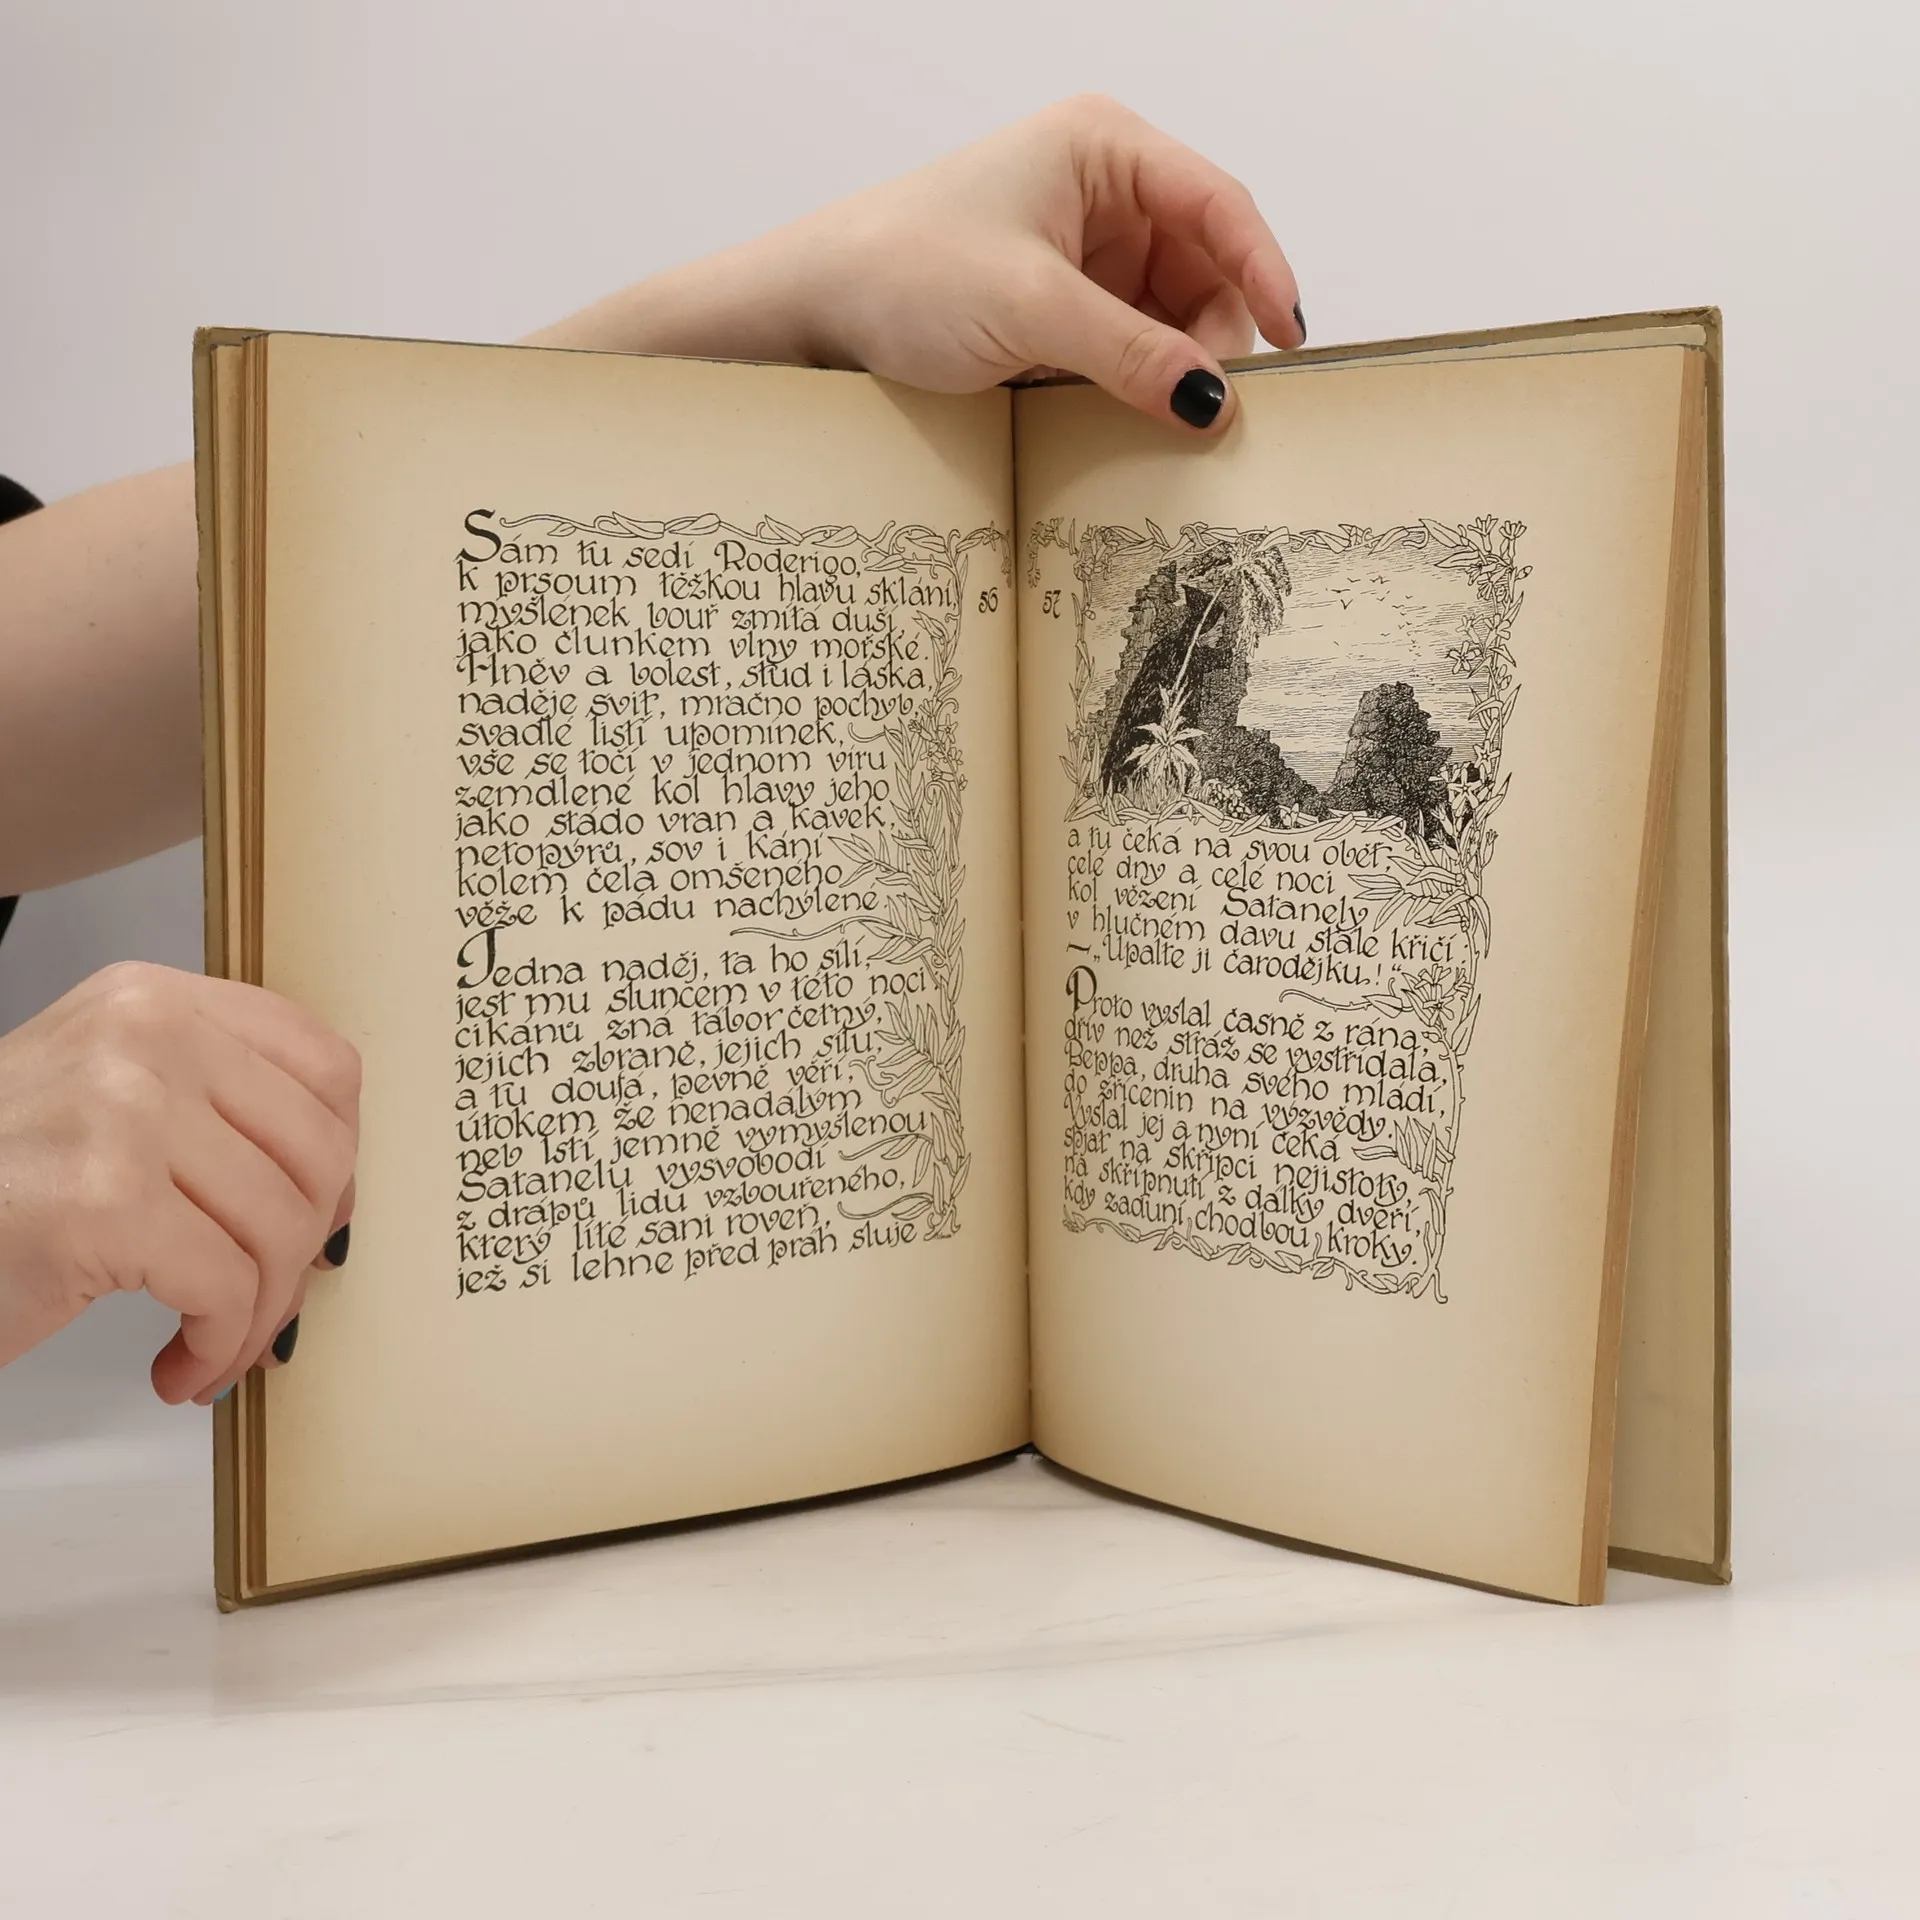 Sám tu sedí Roderigo,
k prsoum těžkou hlavu sklání,
myšlének bouř zmítá duší
jako člunkem vlny mořské.
Hněv a bolest, stud i láska,
naděje svit, mračno pochyb,
svadlé listí upomínek,
vše se točí v jednom víru
zemdlené kol hlavy jeho
jako stádo vran a kavek,
netopýrů, sov i kání
kolem čela omšeného
věže k pádu nachýlené.
Jedna naděj, ta ho sílí,
jest mu sluncem v této noci:
cikánů zná tábor četný,
jejich zbraně, jejich sílu,
a tu doufá, pevně věří,
útokem že nenadálým
neb lstí jemně vymyšlenou
Satanelu vysvobodí
z drápů lidu vzbouřeného,
který líté sani roveň,
jež si lehne před práh sluje
56
57
a tu čeká na svou oběť,
celé dny a celé noci
kol vězení Satanely
v hlučném davu stále křičí:
—„Upalte ji čarodějku!“
Proto vyslal časně z rána,
dřív než stráž se vystřídala,
Beppa, druha svého mládí,
do zřícenin na výzvědy.
Vyslal jej a nyní čeká
spjat na skřipci nejistoty,
na skřípnutí z dálky dveří,
kdy zaduní chodbou kroky.